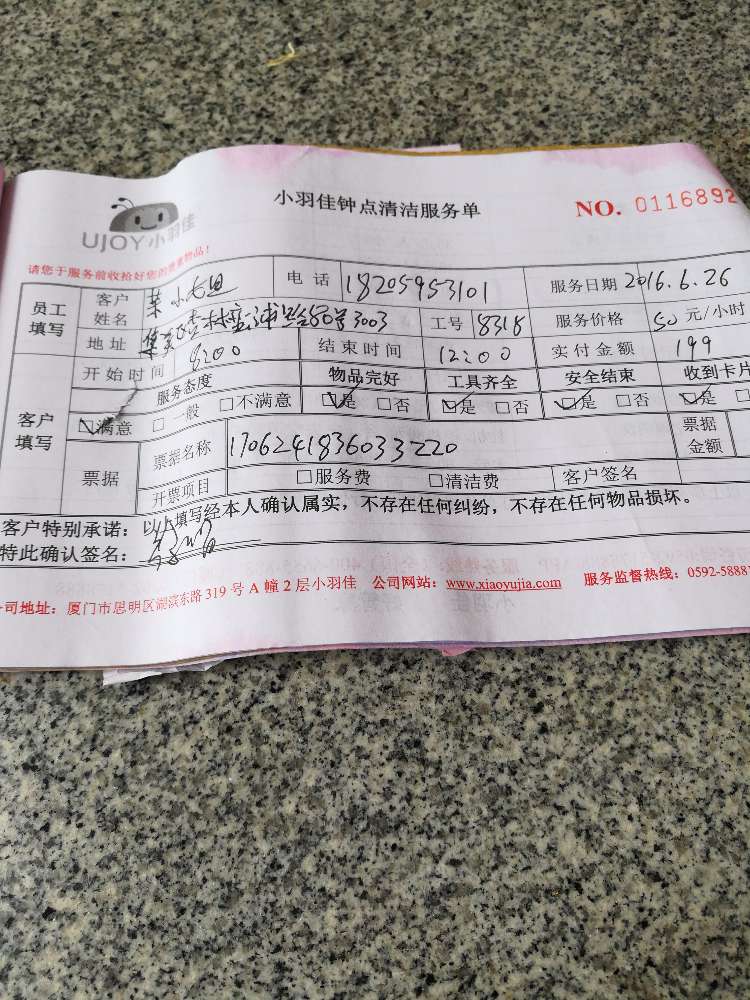 UJOY小羽佳
小羽佳钟点清洁服务单
NO. 0116892
请您于服务前收拾好您的贵重物品!
员工填写 客户姓名 小姐 电话 18205953101 服务日期 2016.6.26
地址 集美区杏林 80号3003 工号 8318 服务价格 50 元/小时
开始时间 8:00 结束时间 12:00 实付金额 199
客户填写 服务态度 物品完好 工具齐全 安全结束 收到卡片
☑满意 □一般 □不满意 ☑是 □否 ☑是 □否 ☑是 □否 ☑是 □
票据 票据名称 1706241836033220 票据金额
开票项目 □服务费 □清洁费 客户签名
客户特别承诺:以上填写经本人确认属实,不存在任何纠纷,不存在任何物品损坏。
特此确认签名:
司地址:厦门市思明区湖滨东路319号A幢2层小羽佳 公司网站:www.xiaoyujia.com 服务监督热线:0592-5888